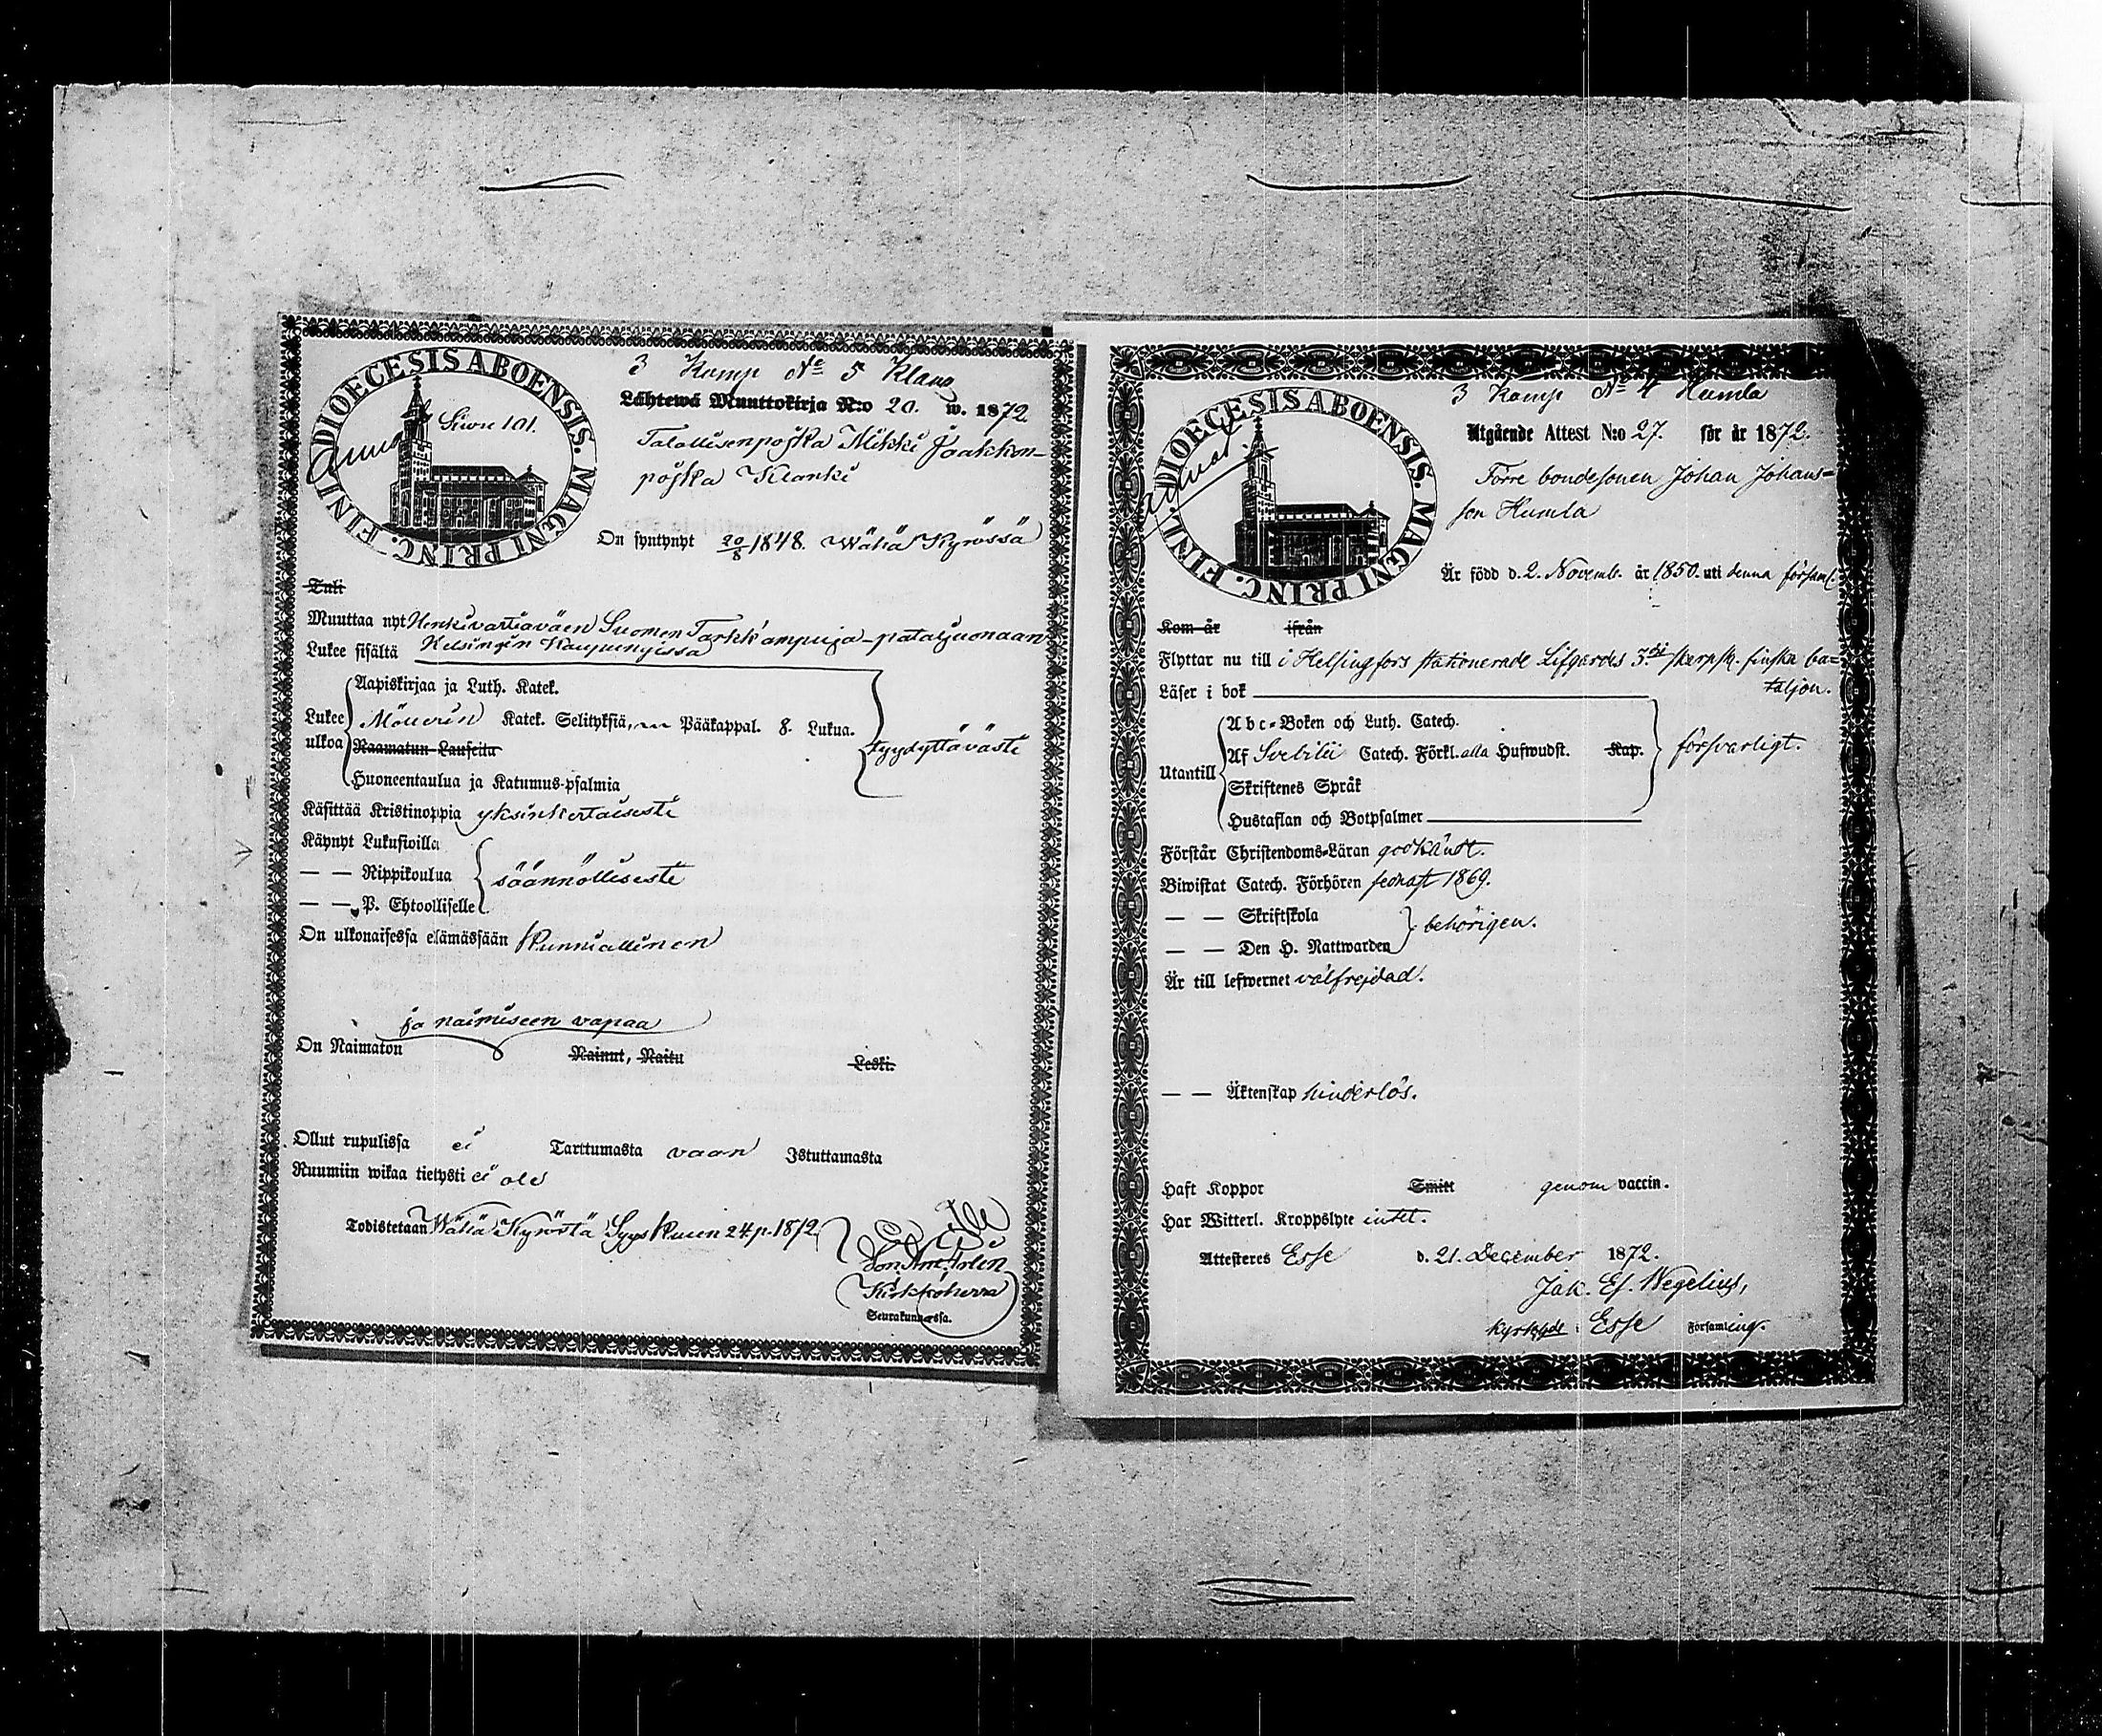 DIOECESIS ABOENSIS. MAGNI PRINC. FINL.
Siwu 101.
3 Komp No 5 Klang
Lähtewä Muuttokirja N:o 20. w. 1872
Talollisenpojka Mikki Jaakkon-
pojka Klanki
On syntynyt 20/8 1848. Wähä Kyrössä
Tuli
Muuttaa nyt Henkivartiaväen Suomen Tarkk'ampuja-pataljuonaan
Helsingin Kaupungissa
Lukee sisältä
Aapiskirjaa ja Luth. Katek.
Lukee ulkoa
Katek. Selityksiä, Pääkappal. 8. Lukua.
Raamatun Lauseita
tyydyttäväste
Huoneentaulua ja Katumus-psalmia
Käsittää Kristinoppia yksinkertaiseste
Käynyt Lukusioilla
— — Rippikoulua
säännölliseste
— — P. Ehtoolliselle
On ulkonaisessa elämässään kunniallinen
ja naimiseen vapaa
On Naimaton Nainut, Naitu Leski.
Ollut rupulissa ei Tarttumasta vaan Istuttamasta
Ruumiin wikaa tietysti ei ole
Todistetaan Wähä Kyröstä Syyskuun 24 p. 1872
Kirkkoherra
Seurakunnassa.
DIOECESIS ABOENSIS. MAGNI PRINC. FINL.
3 Komp No 4 Humla
Utgående Attest N:o 27. för år 1872.
Förre bondesonen Johan Johans=
son Humla
Är född d. 2. Novemb. år 1850. uti denna församl.
Kom år ifrån
Flyttar nu till i Helsingfors stationerade Lifgardes 3:dj skarpsk. finska ba=
taljon.
Läser i bok
Abc-Boken och Luth. Catech.
Utantill
Af Svebilii Catech. Förkl. alla Hufwudst. Kap.
försvarligt.
Skriftenes Språk
Hustaflan och Botpsalmer
Förstår Christendoms-Läran godkändt.
Biwistat Catech. Förhören sednast 1869.
— — Skriftskola
behörigen.
— — Den H. Nattwarden
Är till lefwernet välfrejdad.
— — Äktenskap hinderlös.
Haft Koppor Smitt genom vaccin.
Har Witterl. Kroppslyte intet.
Attesteres Esse d. 21. December 1872.
Jak. Ef. Wegelius,
Kyrkhde i Esse Församling.